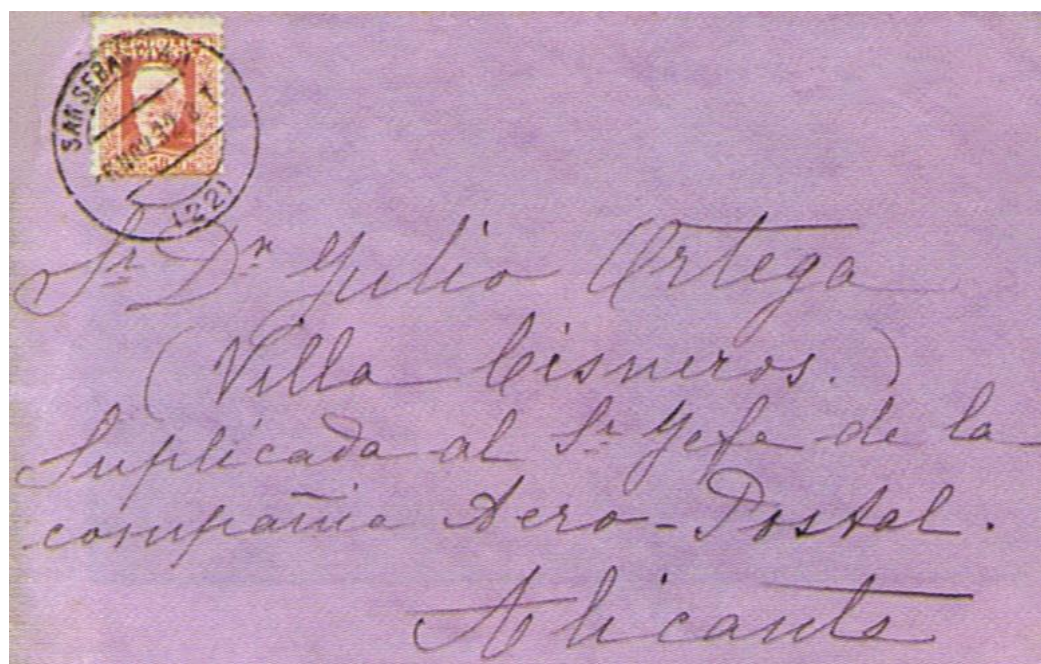 REPUBLICA
SAN SEBASTIAN
(22)
Sr. Dn Julio Ortega
(Villa Cisneros.)
Suplicada al Sr. Gefe de la
compañia Aero-Postal.
Alicante